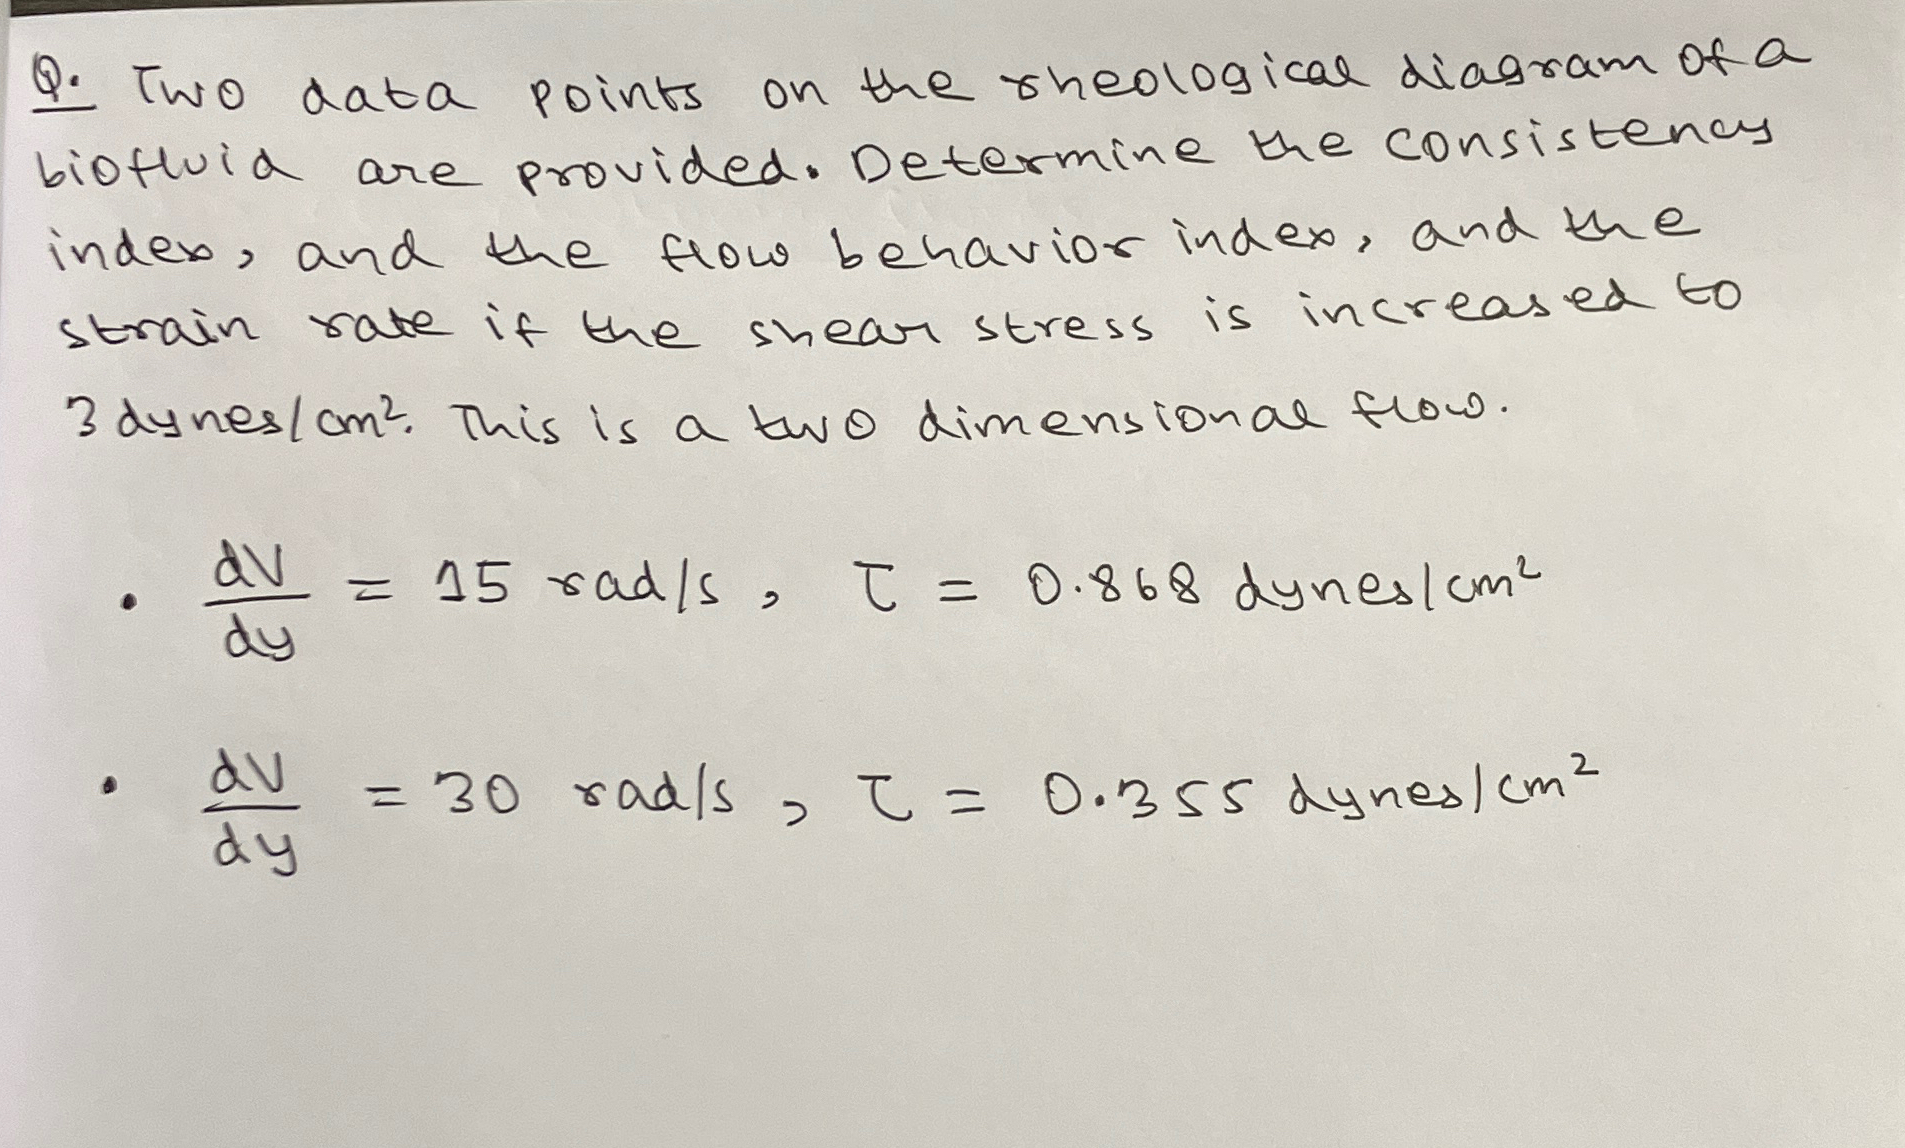 Q. Two data points on the rheological diagram of a
biofluid are provided. Determine the consistency
index, and the flow behavior index, and the
strain rate if the shear stress is increased to
3 dynes/cm². This is a two dimensional flow.
• dV/dy = 15 rad/s, τ = 0.868 dynes/cm²
• dV/dy = 30 rad/s, τ = 0.355 dynes/cm²